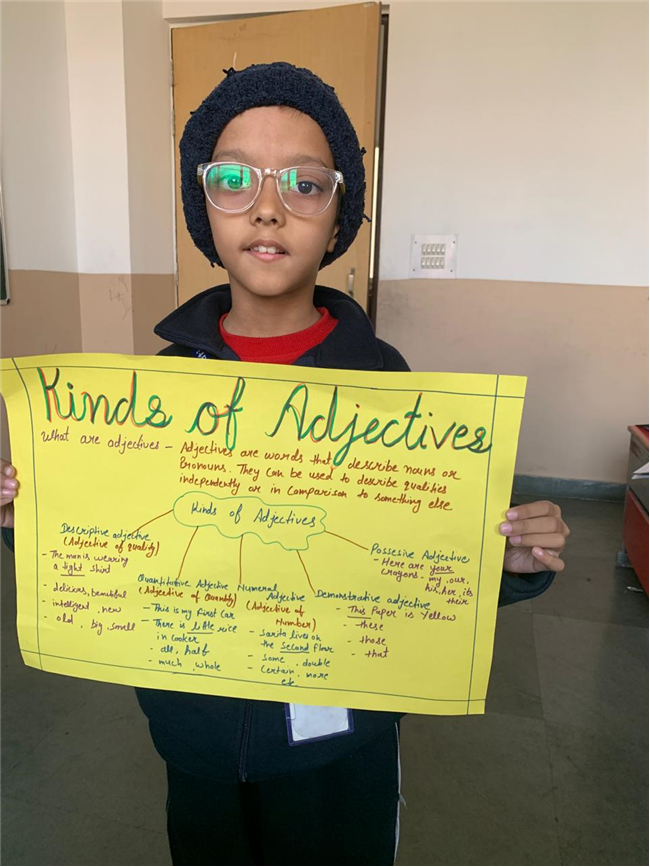 Kinds of Adjectives
What are adjectives - Adjectives are words that describe nouns or
Pronouns. They can be used to describe qualities
independently or in comparison to something else
Kinds of Adjectives
Descriptive adjective
(Adjective of quality)
- The man is wearing
a tight shirt
- delicious, beautiful
- intelligent, new
- old, big, small
Quantitative Adjective
(Adjective of Quantity)
- This is my First Car
- There is little rice
in cooker
- all, half
- much, whole
Numeral
Adjective
(Adjective of
Number)
- Sarita lives on
the second floor
- Some, double
- Certain, more
etc.
Demonstrative adjective
- This Paper is Yellow
- these
- those
- that
Possesive Adjective
- Here are your
Crayons - my, our,
his, her, its
their